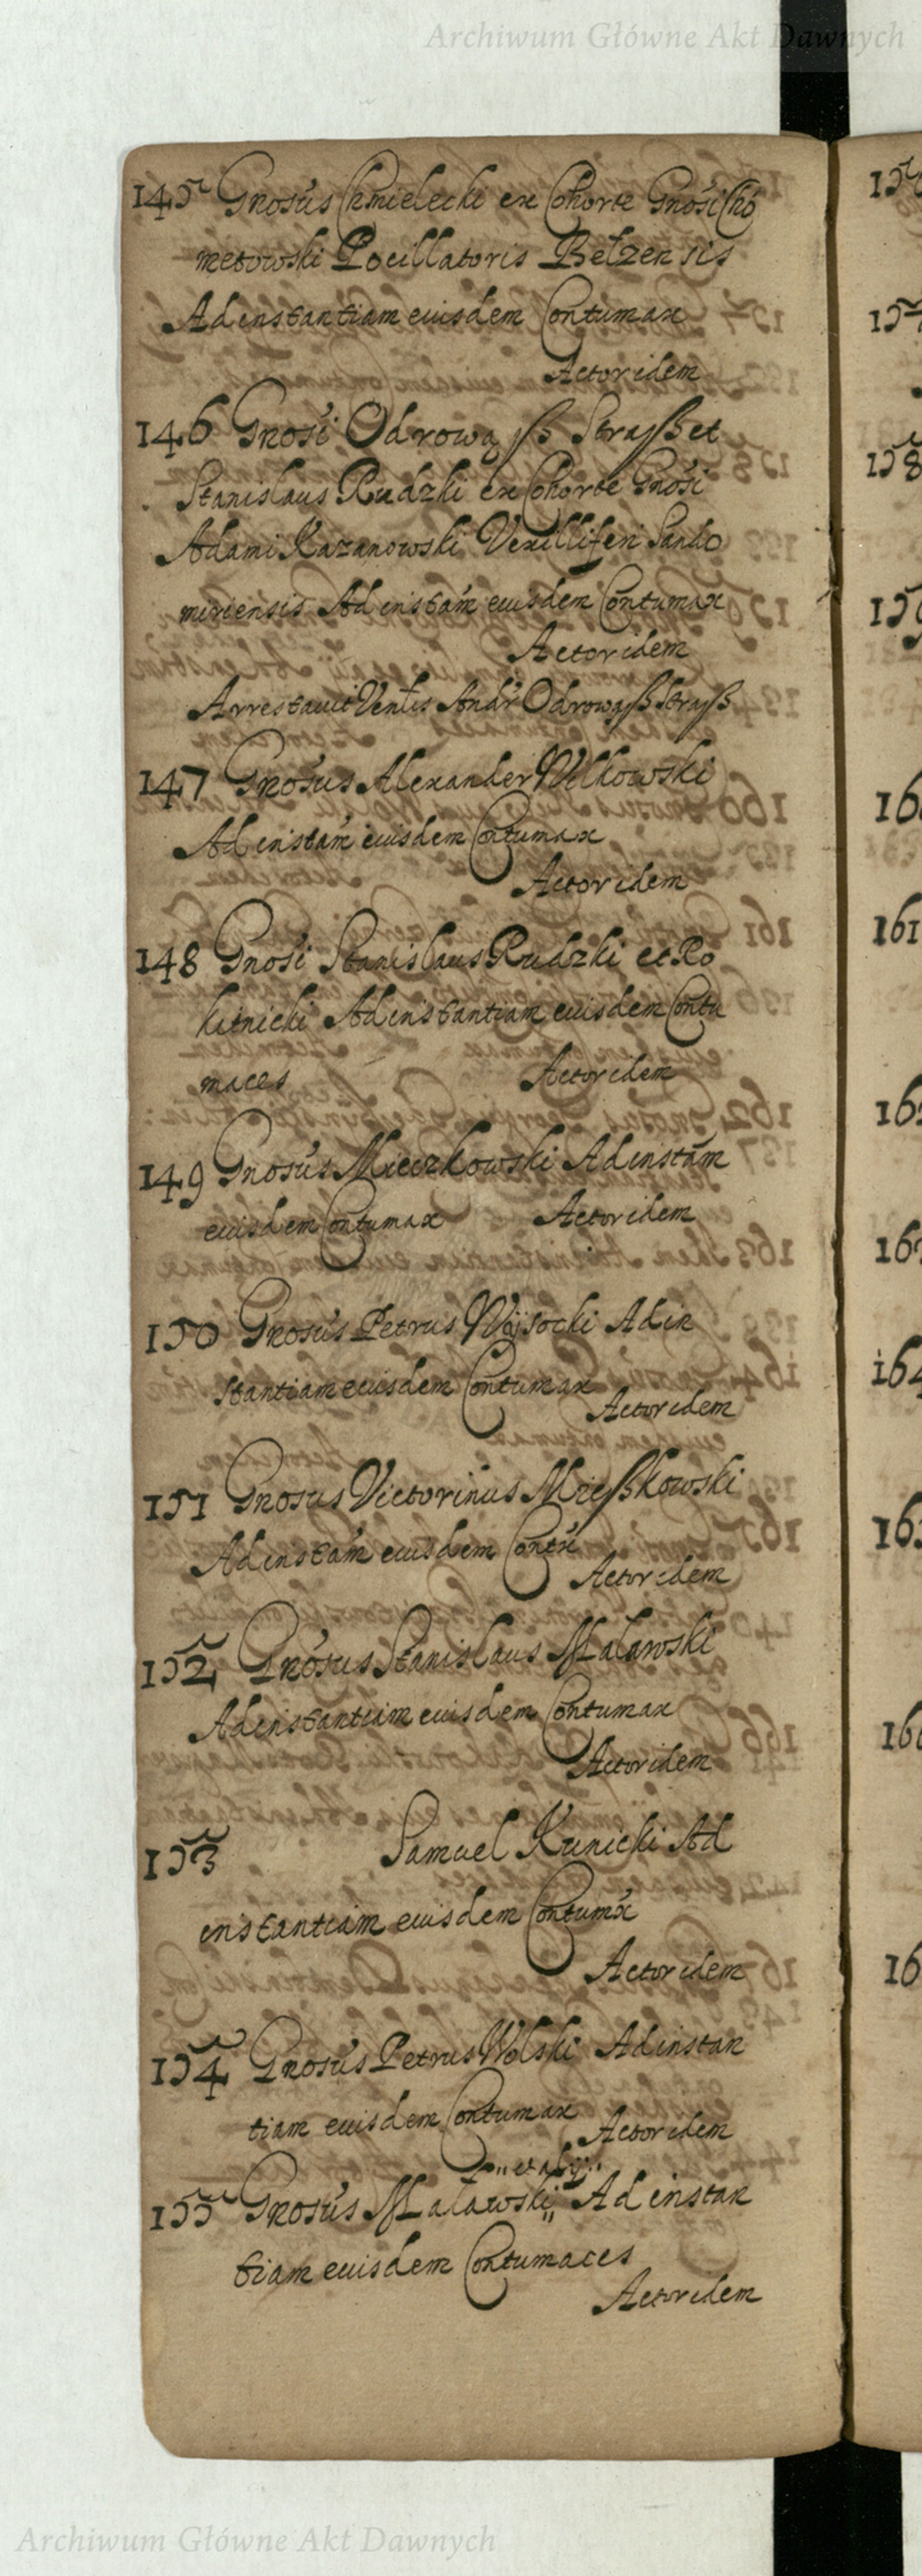 Archiwum Główne Akt Dawnych
145 Gnosus Chmielecki ex Cohorte Gnosi Cho
metowski Pocillatoris Belzensis
Ad instantiam eiusdem Contumax
Actor idem
146 Gnosi Odrowąß Straß et
Stanislaus Rudzki ex Cohorte Gnosi
Adami Kazanowski Vexilliferi Sando
miriensis Ad instam eiusdem Contumax
Actor idem
Arrestavit Andr Odrowąß Straß
147 Gnosus Alexander Wilkowski
Ad instam eiusdem Contumax
Actor idem
148 Gnosi Stanislaus Rudzki et Ro
kitnicki Ad instantiam eiusdem Contu
maces Actor idem
149 Gnosus Mieczkowski Ad instam
eiusdem Contumax Actor idem
150 Gnosus Petrus Wÿsocki Ad in
stantiam eiusdem Contumax
Actor idem
151 Gnosus Victorinus Mießkowski
Ad instam eiusdem Contx
Actor idem
152 Gnosus Stanislaus Malawski
Ad instantiam eiusdem Contumax
Actor idem
153 Samuel Kunicki Ad
instantiam eiusdem Contumx
Actor idem
154 Gnosus Petrus Wolski Ad instan
tiam eiusdem Contumax
Actor idem
et alÿ
155 Gnosus Malawski Ad instan
tiam eiusdem Contumaces
Actor idem
Archiwum Główne Akt Dawnych